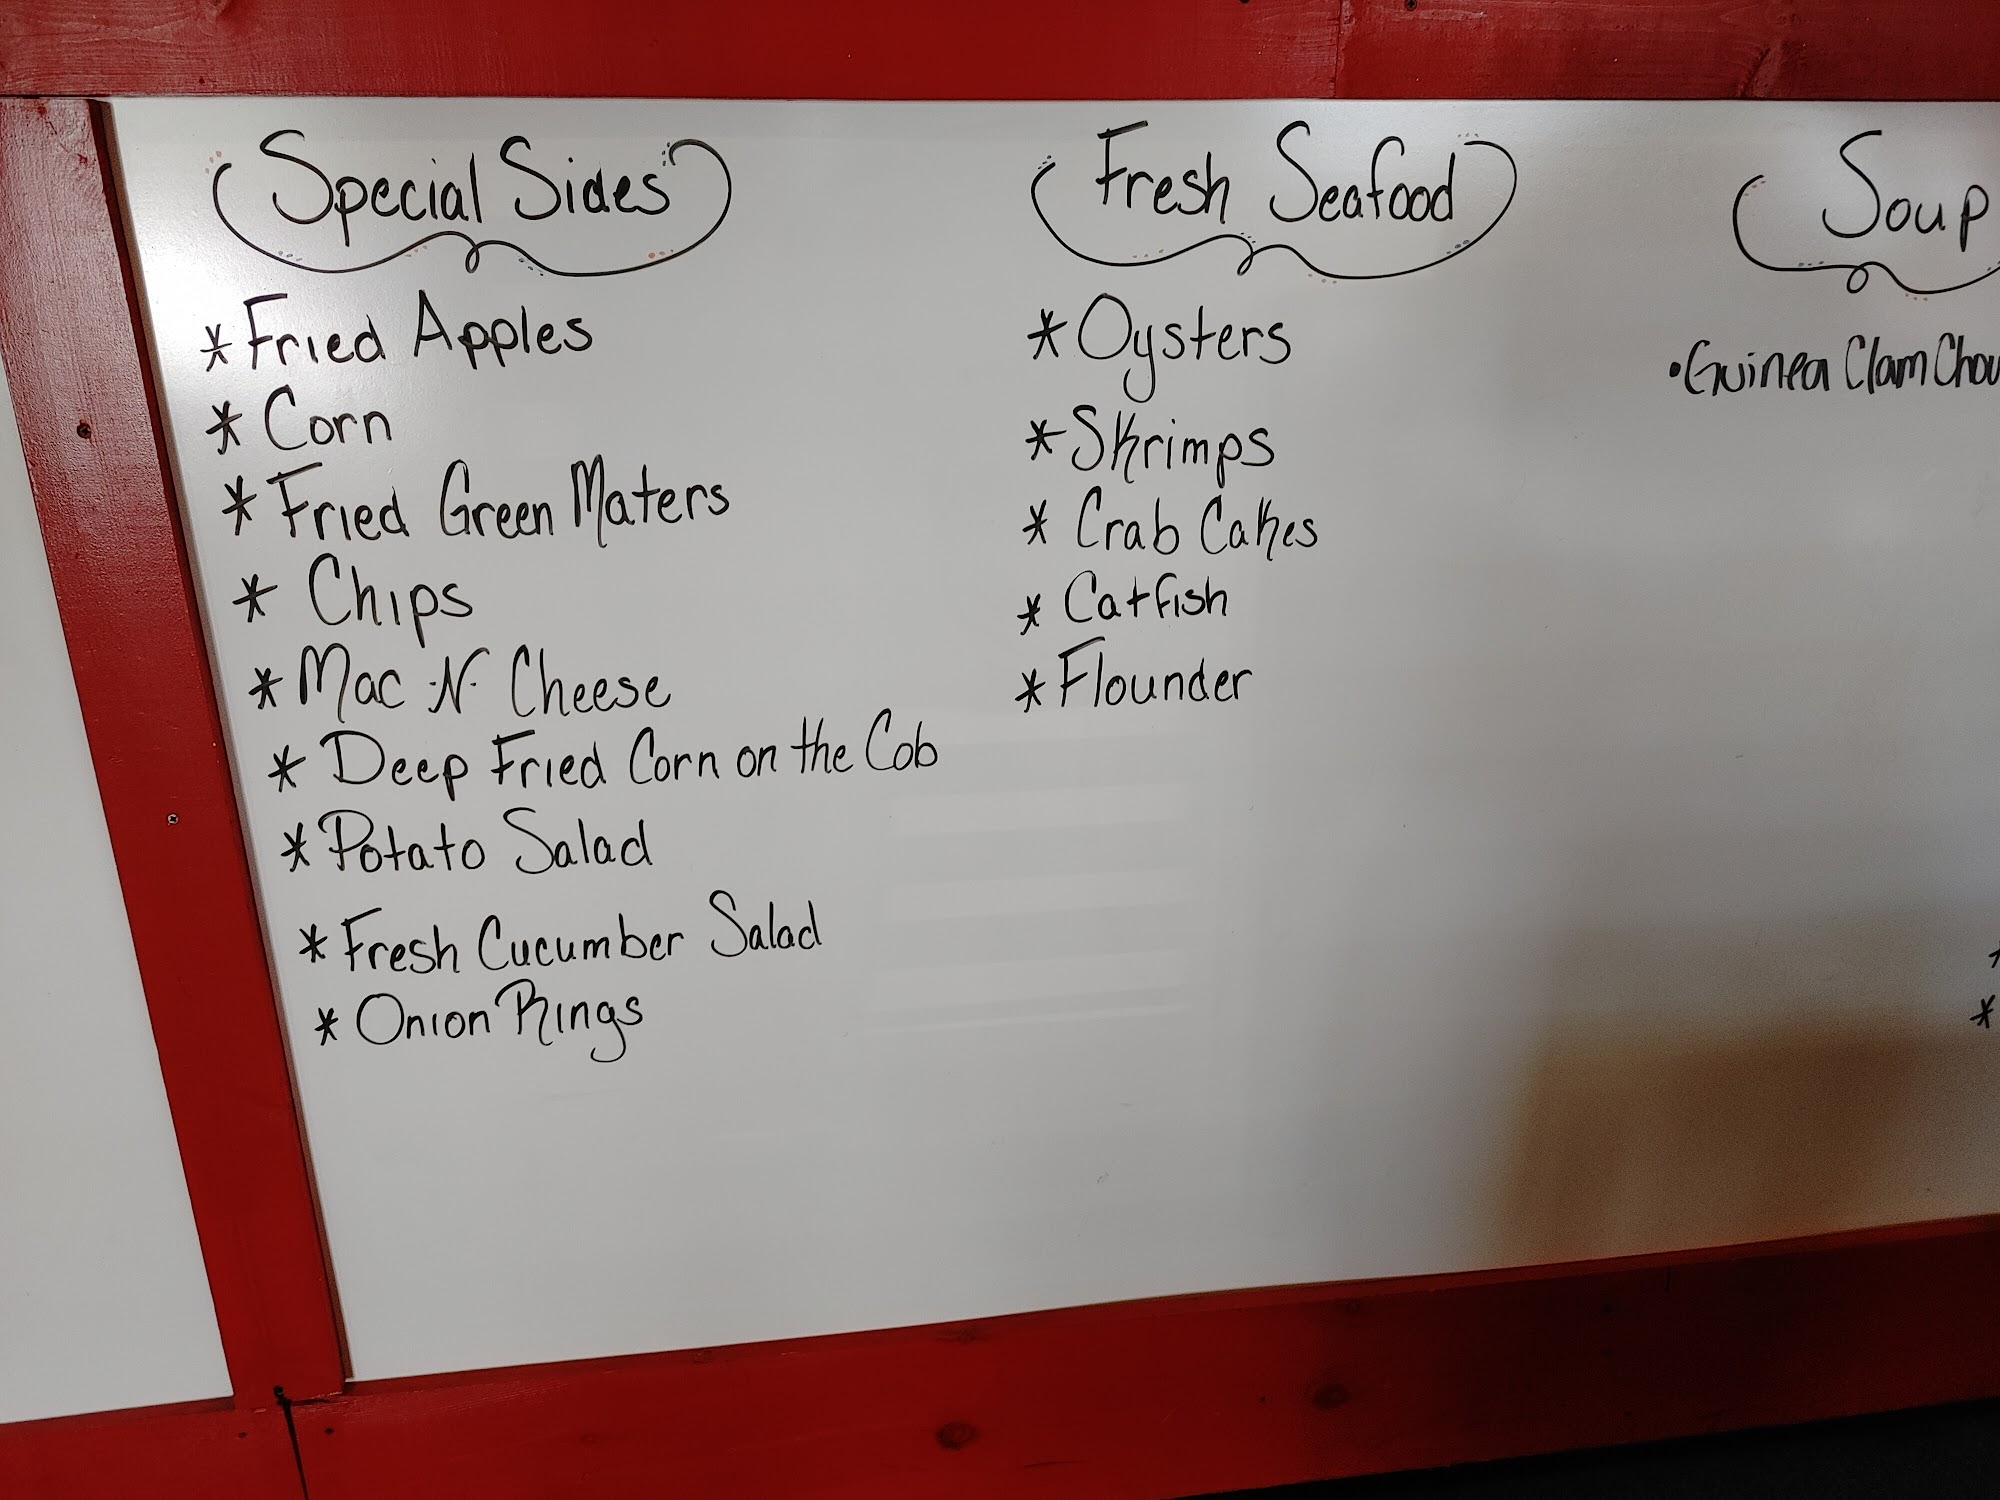 Special Sides
* Fried Apples
* Corn
* Fried Green Maters
* Chips
* Mac -N- Cheese
* Deep Fried Corn on the Cob
* Potato Salad
* Fresh Cucumber Salad
* Onion Rings
Fresh Seafood
* Oysters
* Skrimps
* Crab Cakes
* Catfish
* Flounder
Soup
• Guinea Clam Chow
*
*